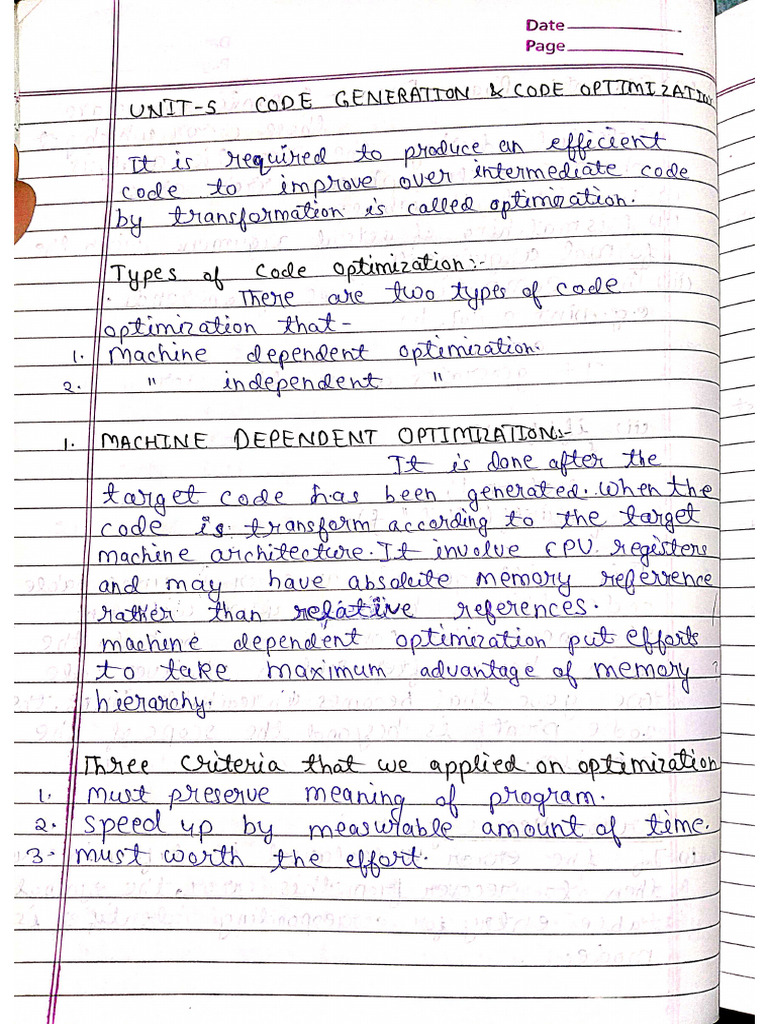 Date
Page
UNIT-5 CODE GENERATION & CODE OPTIMIZATION
It is required to produce an efficient
code to improve over intermediate code
by transformation is called optimization.
Types of code optimization:-
There are two types of code
optimization that-
1. Machine dependent optimization.
2. " independent "
1. MACHINE DEPENDENT OPTIMIZATION:-
It is done after the
target code has been generated. When the
code is transform according to the target
machine architecture. It involve CPU registers
and may have absolute memory referrence
rather than relative references.
machine dependent optimization put efforts
to take maximum advantage of memory
hierarchy.
Three criteria that we applied on optimization
1. must preserve meaning of program.
2. speed up by measurable amount of time.
3. must worth the effort.